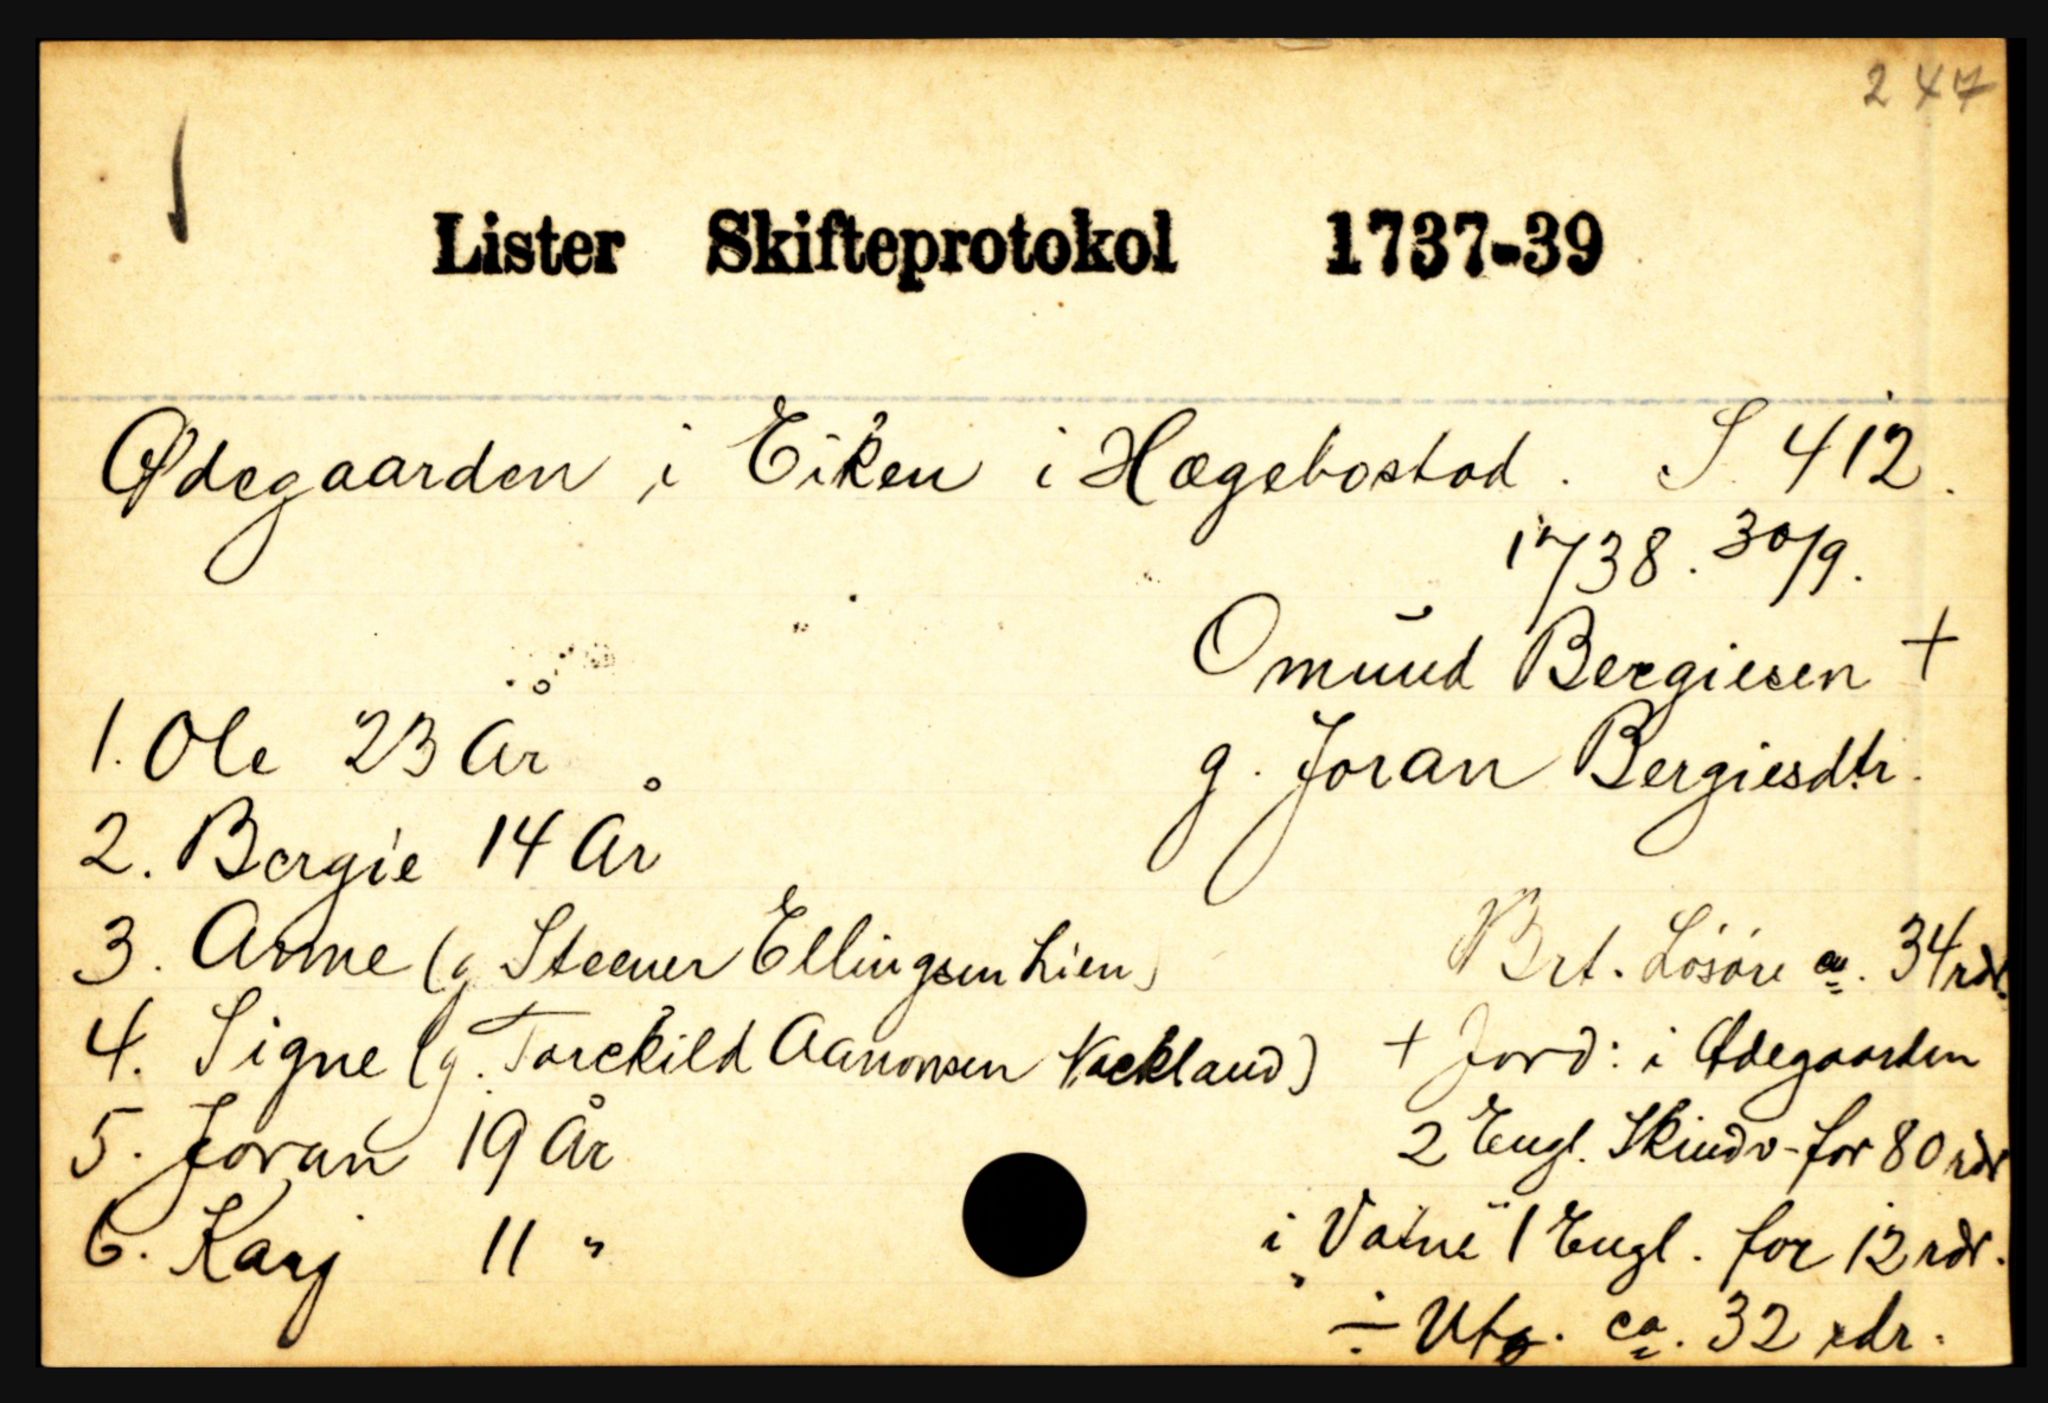 247
Lister Skifteprotokol 1737-39
Ødegaarden i Eiken i Hægebostad. S. 412.
1738. 30/9.
Omund Bergiesen +
g. Joran Bergiesdtr.
1. Ole 23 År
2. Bergie 14 År
3. Anne (g Steener Ellingsen Lien)
4. Signe (g. Torckild Aanonsen)
5. Joran 19 År
6. Karj 11 "
Brt. Løsøre ca. 34 rdr.
+ Jord: i Ødegaarden
2 Engl. Skindv-for 80 rdr
i 1 Engl. for 12 rdr.
÷ Utg. ca. 32 rdr.